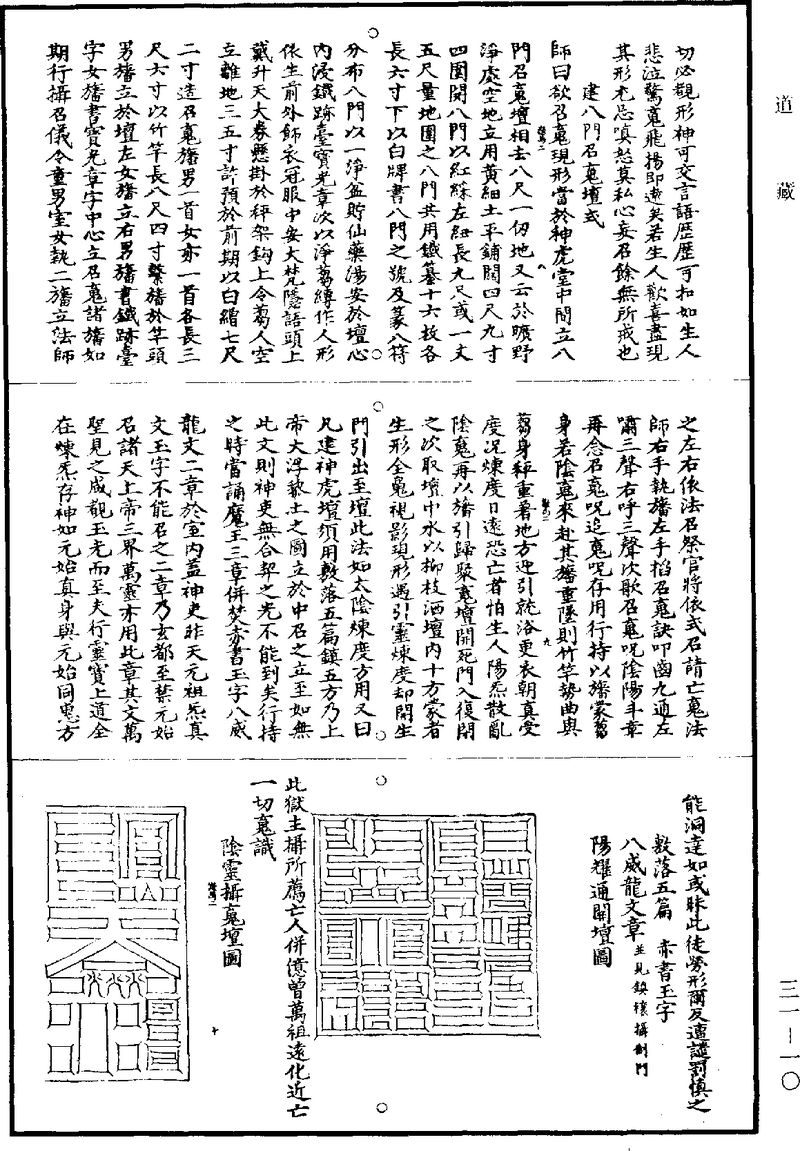 道藏
三一—一〇
切必觀形神可交言語歷歷可扣如生人
悲泣驚䰟飛揚即遠矣若生人歡喜盡現
其形尤忌嗔怒莫私心妄召餘無所戒也
建八門召䰟壇式
師曰欲召䰟現形當於神虎堂中間立八
門召䰟壇相去八尺一仞地又云於曠野
淨處空地立用黃細土平鋪闊四尺九寸
四圍開八門以紅綠左紐長九尺或一丈
五尺量地圍之八門共用鐵纂十六枚各
長六寸下以白牌書八門之號及篆八符
分布八門以一淨盆貯仙藥湯安於壇心
內浸鐵跡臺寶光章次以淨蒭縛作人形
依生前外飾衣冠服中安大梵隱語頭上
戴升天大券懸掛於秤架鈎上令蒭人空
立離地三五寸許預於前期以白絹七尺
二寸造召䰟旛男一首女亦一首各長三
尺六寸以竹竿長八尺四寸繫旛於竿頭
男旛立於壇左女旛立右男旛書鐵跡臺
字女旛書寶光章字中心立召䰟諸旛如
期行攝召儀令童男室女執二旛立法師
之左右依法召祭官將依式召請亡䰟法
師右手執旛左手掐召䰟訣叩齒九通左
嘯三聲右呼三聲次歌召䰟呪陰陽斗章
再念召䰟呪追䰟呪存用行持以旛蒙蒭
身若陰䰟來赴其旛重墜則竹竿勢曲與
蒭身秤重著地方迎引就浴更衣朝真受
度況煉度日遠恐亡者怕生人陽炁散亂
陰䰟再以旛引歸聚䰟壇開死門入復閉
之次取壇中水以柳枝洒壇內十方蒙者
生形全䰟視影現形遇引靈煉度却開生
門引出至壇此法如太陰煉度方用又曰
凡建神虎壇須用敷落五篇鎮五方乃上
帝大浮黎土之圖立於中召之立至如無
此文則神吏無合契之光不能到矣行持
之時當誦魔王三章併焚赤書玉字八威
龍文二章於室內蓋神吏非天元祖炁真
文玉字不能召之二章乃玄都至禁元始
召諸天上帝三界萬靈亦用此章其文萬
聖見之咸覩玉光而至夫行靈寶上道全
在煉炁存神如元始真身與元始同愿方
能洞達如或昧此徒勞形爾反遭譴罰慎之
敷落五篇　赤書玉字
八威龍文章並見鎮禳攝制門
陽耀通關壇圖
此獄主攝所薦亡人併億曾萬祖遠化近亡
一切䰟識
陰靈攝䰟壇圖